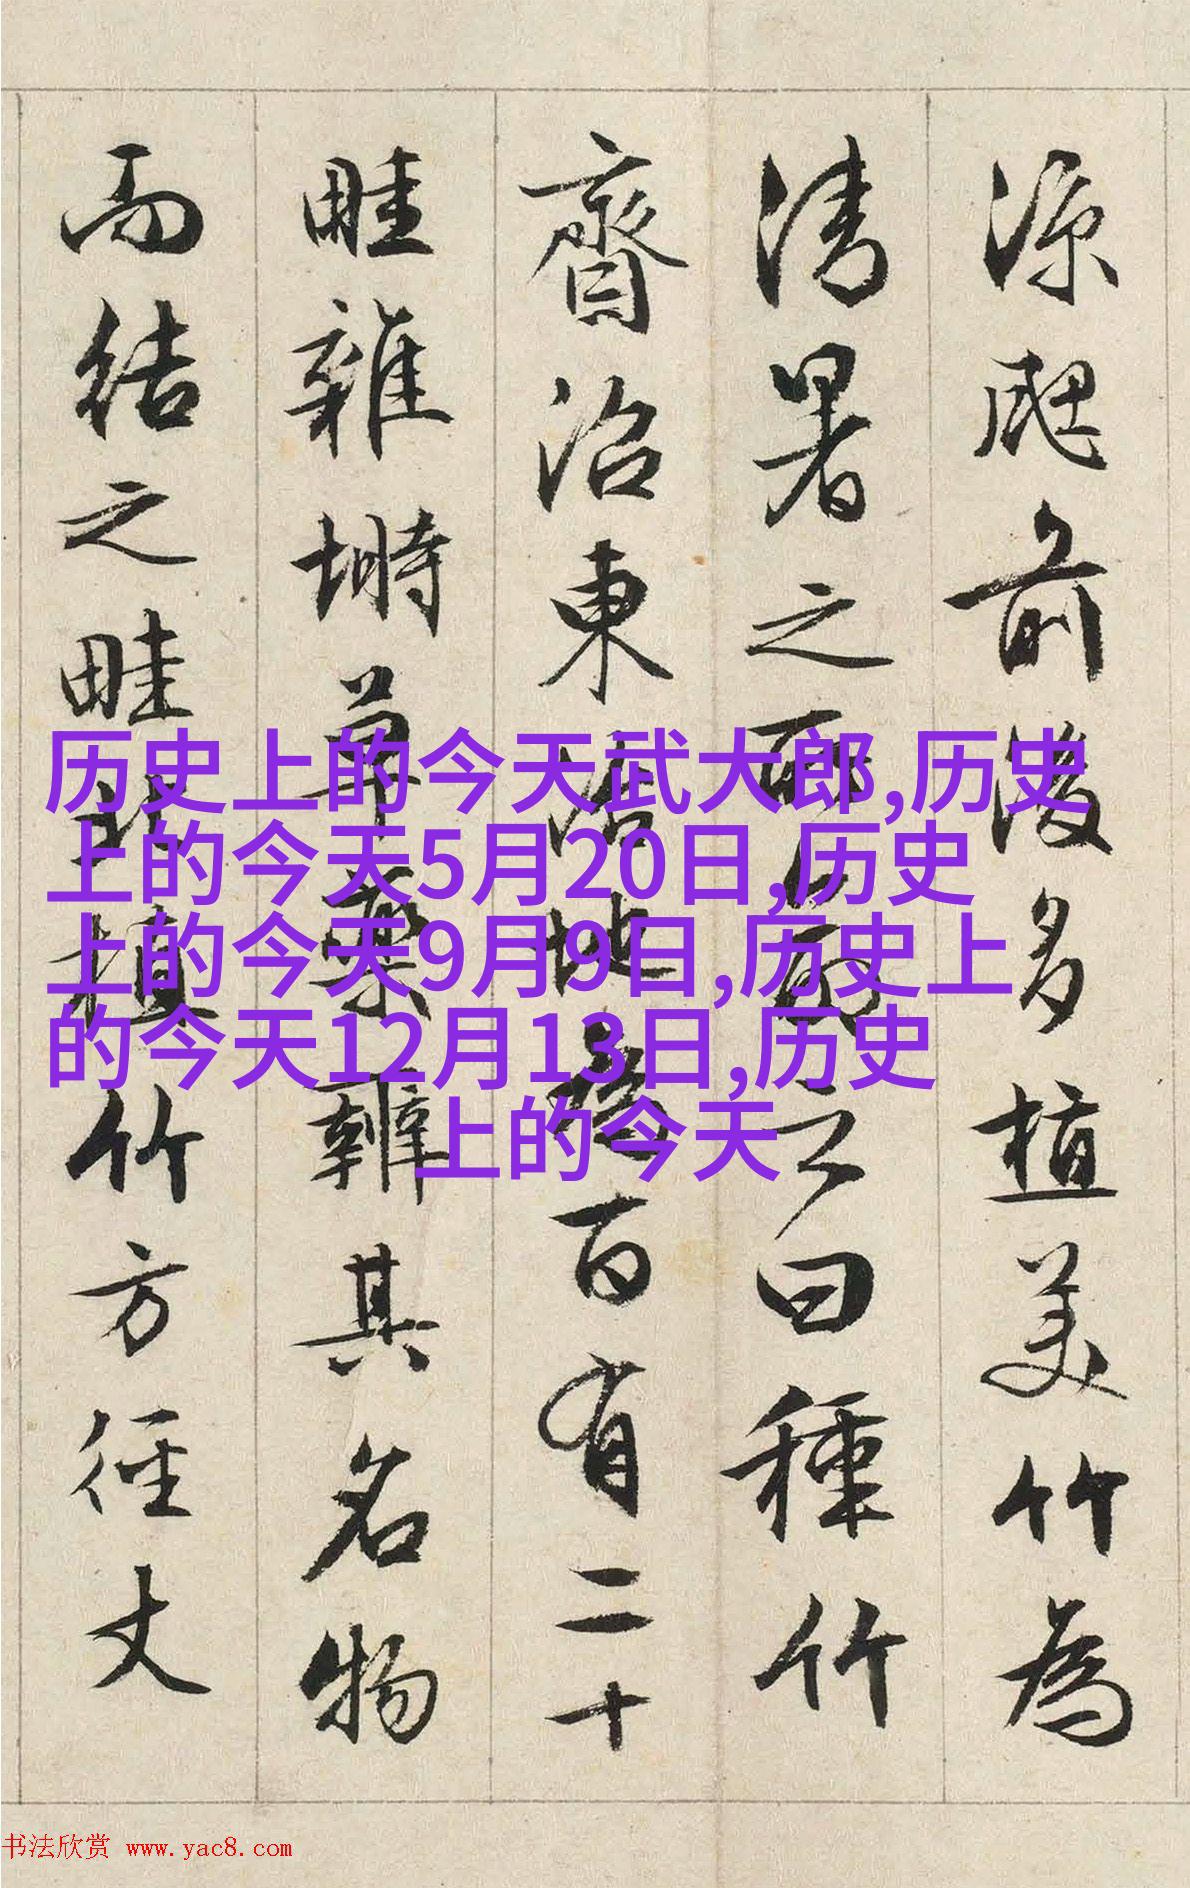 涼颸前後多植美竹為
清暑之所命之曰種竹
齋沼東治地為百有二十
畦雜塒草藥辨其名物
而結之畦北植竹方徑丈
历史上的今天武大郎,历史
上的今天5月20日,历史
上的今天9月9日,历史上
的今天12月13日,历史
上的今天
书法欣赏 www.yac8.com